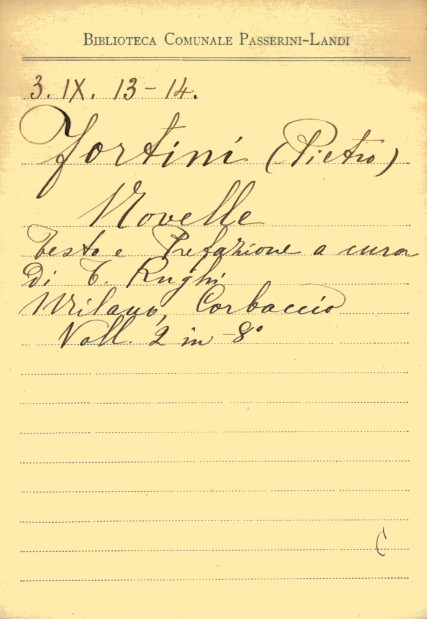 BIBLIOTECA COMUNALE PASSERINI-LANDI
3. IX. 13-14.
Fortini (Pietro)
Novelle
Testo e Prefazione a cura
di T. Rughi
Milano, Corbaccio
Voll. 2 in-8°
C